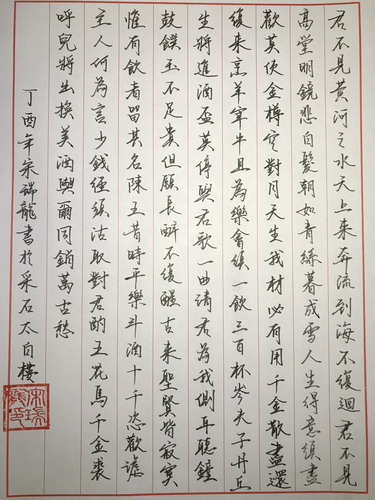 君不見黃河之水天上来奔流到海不復迴君不見
高堂明鏡悲白髮朝如青絲暮成雪人生得意須盡
歡莫使金樽空對月天生我材必有用千金散盡還
復来烹羊宰牛且為樂會須一飲三百杯岑夫子丹丘
生將進酒盃莫停與君歌一曲請君為我側耳聽鐘
鼓饌玉不足貴但願長醉不復醒古来聖賢皆寂寞
惟有飲者留其名陳王昔時平樂斗酒十千恣歡謔
主人何為言少錢徑須沽取對君酌五花馬千金裘
呼兒將出換美酒與爾同銷萬古愁
丁酉年宋瑞龍書於采石太白樓
宋瑞龍印